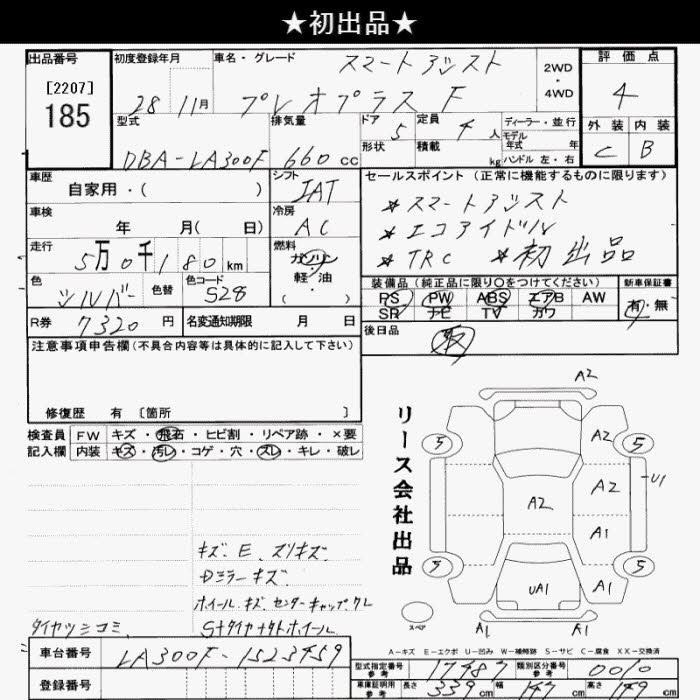 ★初出品★
出品番号
[2207]
185
初度登録年月
28 11月
車名・グレード
スマートアシスト
プレオプラス F
2WD
・
4WD
評価点
4
外装 内装
C B
型式
DBA-LA300F
排気量
660 cc
ドア 5
形状
定員 4 人
積載 kg
ディーラー・並行
モデル
年式 年
ハンドル 左・右
車歴
自家用・( )
シフト
IAT
セールスポイント (正常に機能するものに限ります)
★スマートアシスト
★エコアイドル
★TRC ★初出品
車検
年 月( 日)
冷房
AC
走行
5万0千180 km
燃料
ガソリン
軽・油
( ・ )
色
シルバー
色替
色コード
S28
装備品 (純正品に限り○をつけてください)
PS PW ABS エアB AW
SR ナビ TV カワ
新車保証書
有・無
R券 7320 円
名変通知期限 月 日
後日品
注意事項申告欄(不具合内容等は具体的に記入して下さい)
修復歴 有 〔箇所 〕
検査員 FW キズ・飛石・ヒビ割・リペア跡・×要
記入欄 内装 キズ・汚レ・コゲ・穴・スレ・キレ・破レ
リース会社出品
A2
5 A2 5
A2 A2 U1
A1
5 UA1 A1 5
スペア
A1 A1
キズ、E、スリキズ
Dミラーキズ
ホイールキズ、センターキャップクレ
タイヤツミコミ S+タイヤ+ナットホイール
A-キズ E-エクボ U-凹み W-補修跡 S-サビ C-腐食 XX-交換済
車台番号 LA300F-1523459
登録番号
型式指定番号
参考
17487
類別区分番号
参考
0010
車庫証明用
参考
長さ 339 cm 幅 147 cm 高さ 149 cm